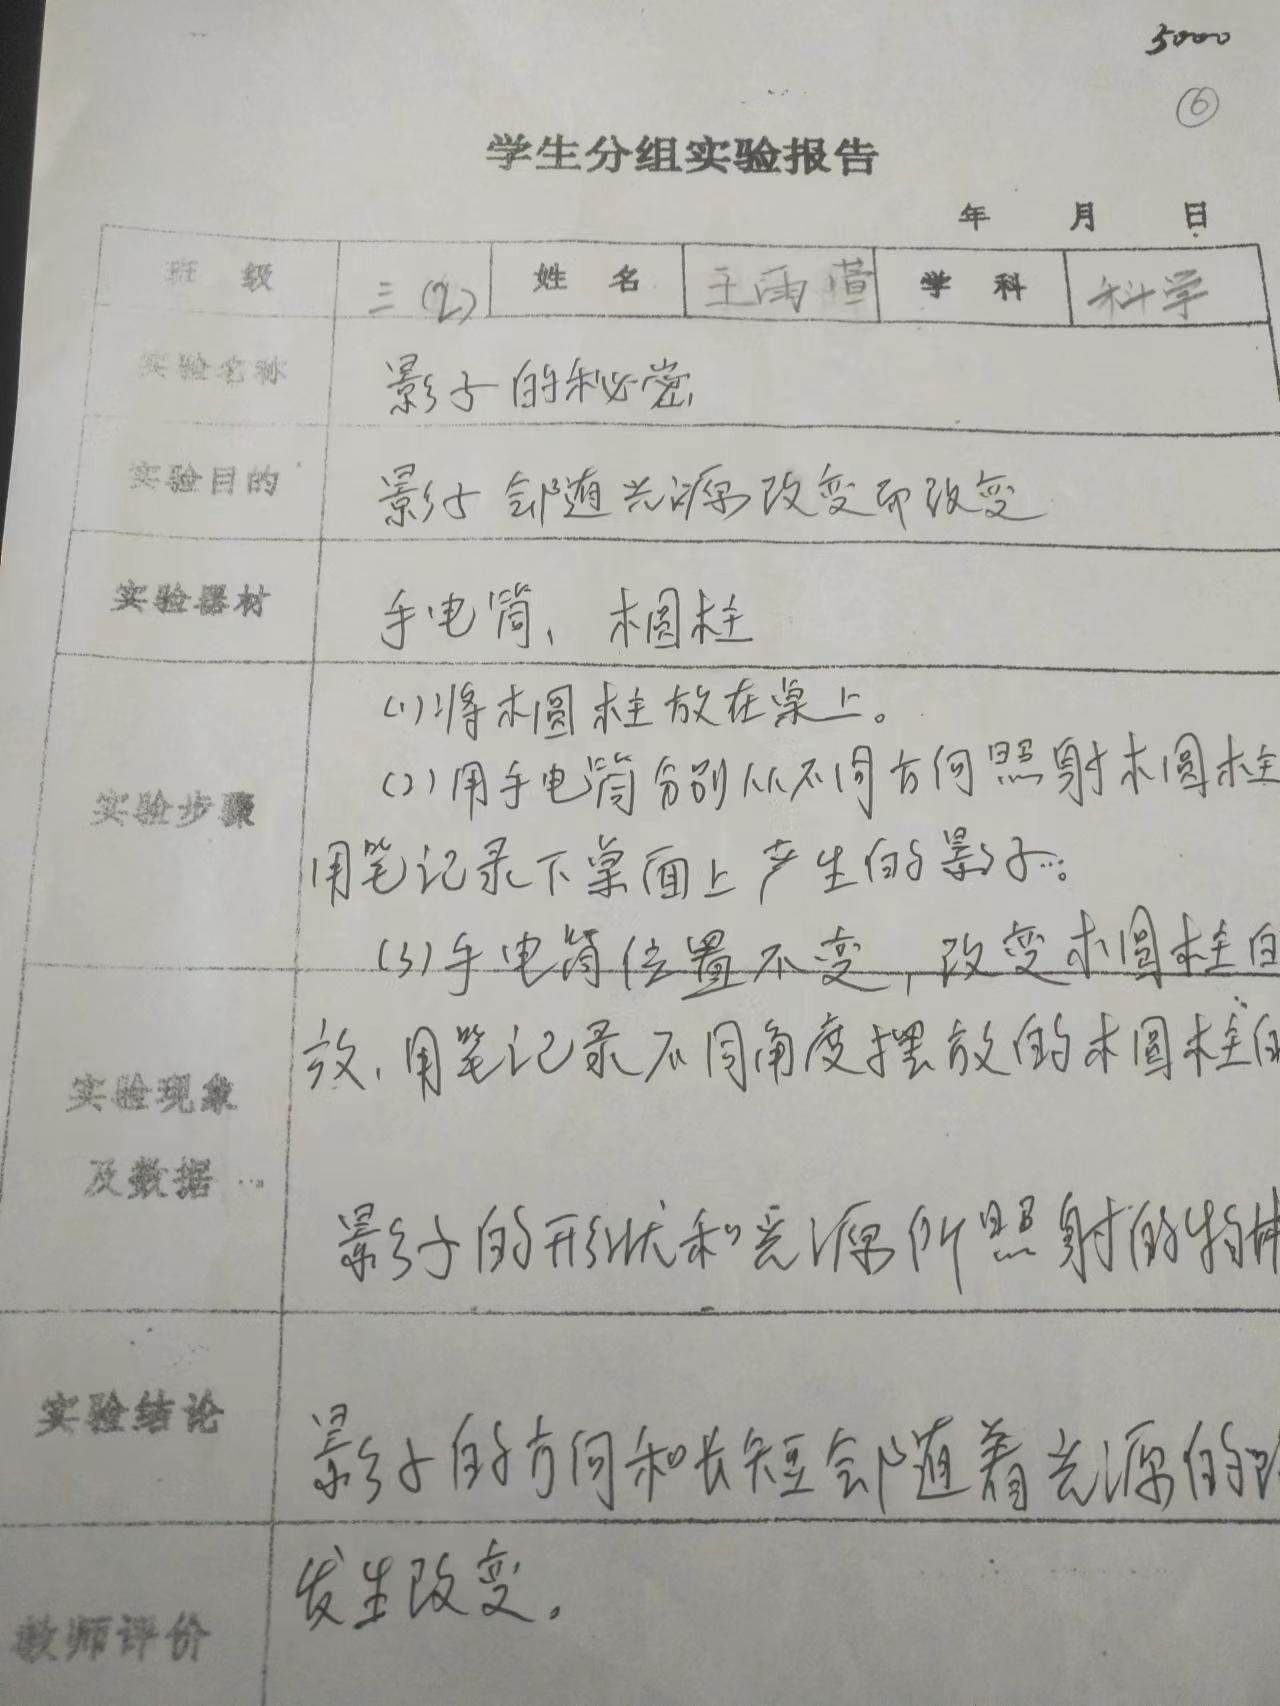 5000
6
学生分组实验报告
年 月 日
班 级 三(2) 姓 名 王雨萱 学 科 科学
实验名称 影子的秘密
实验目的 影子会随光源改变而改变
实验器材 手电筒、木圆柱
(1)将木圆柱放在桌上。
(2)用手电筒分别从不同方向照射木圆柱
实验步骤
用笔记录下桌面上产生的影子。
(3)手电筒位置不变,改变木圆柱
放,用笔记录不同角度摆放的木圆柱
实验现象
及数据
影子的形状和光源所照射的物体
实验结论
影子的方向和长短会随着光源的
发生改变。
教师评价